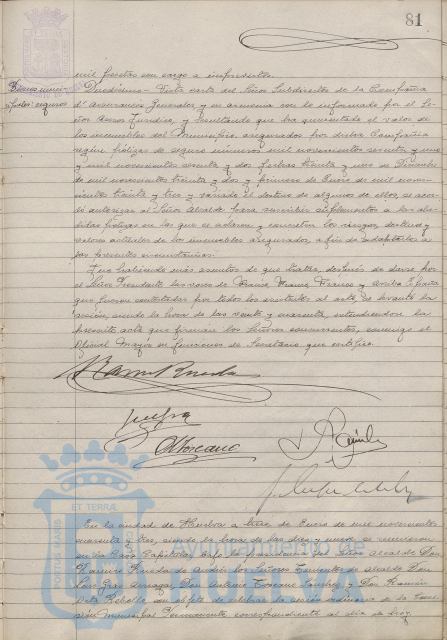 81
mil pesetas con cargo a imprevistos.
Bienes munici-
pales: seguros
Duodécimo.- Vista carta del Señor Subdirector de la Compañía
d'Assurances Generales, y en armonía con lo informado por el Se-
ñor Asesor Jurídico, y resultando que ha aumentado el valor de
los inmuebles del Municipio, asegurados por dicha Compañía
según pólizas de seguro números mil novecientos sesenta y uno
y mil novecientos sesenta y dos fechas treinta y uno de Diciembre
de mil novecientos treinta y dos y primero de Enero de mil nove-
cientos treinta y tres y variado el destino de algunos de ellos, se acor-
dó autorizar al Señor Alcalde para suscribir suplementos a las alu-
didas pólizas en las que se aclaren y concreten los riesgos, destinos y
valores actuales de los inmuebles asegurados, a fin de adaptarlos a
las presentes circunstancias.
Y no habiendo más asuntos de que tratar, después de darse por
el Señor Presidente las voces de Franco, Franco, Franco y Arriba España
que fueron contestadas por todos los asistentes al acto, se levantó la
sesión, siendo la hora de las veinte y cuarenta, extendiéndose la
presente acta que firman los Señores concurrentes, conmigo el
Oficial Mayor en funciones de Secretario que certifico.
ET TERRÆ
PORTUS MARIS
Ayuntamiento de
En la ciudad de Huelva a trece de Enero de mil novecientos
cuarenta y tres, siendo la hora de las diez y nueve, se reunieron
en la Casa Capitular bajo la presidencia del Señor Alcalde Don
los Señores Tenientes de Alcalde Don
Don Antonio Toscano Sánchez y Don Ramón
con objeto de celebrar la sesión ordinaria de la Comi-
sión Municipal Permanente correspondiente al día de hoy.